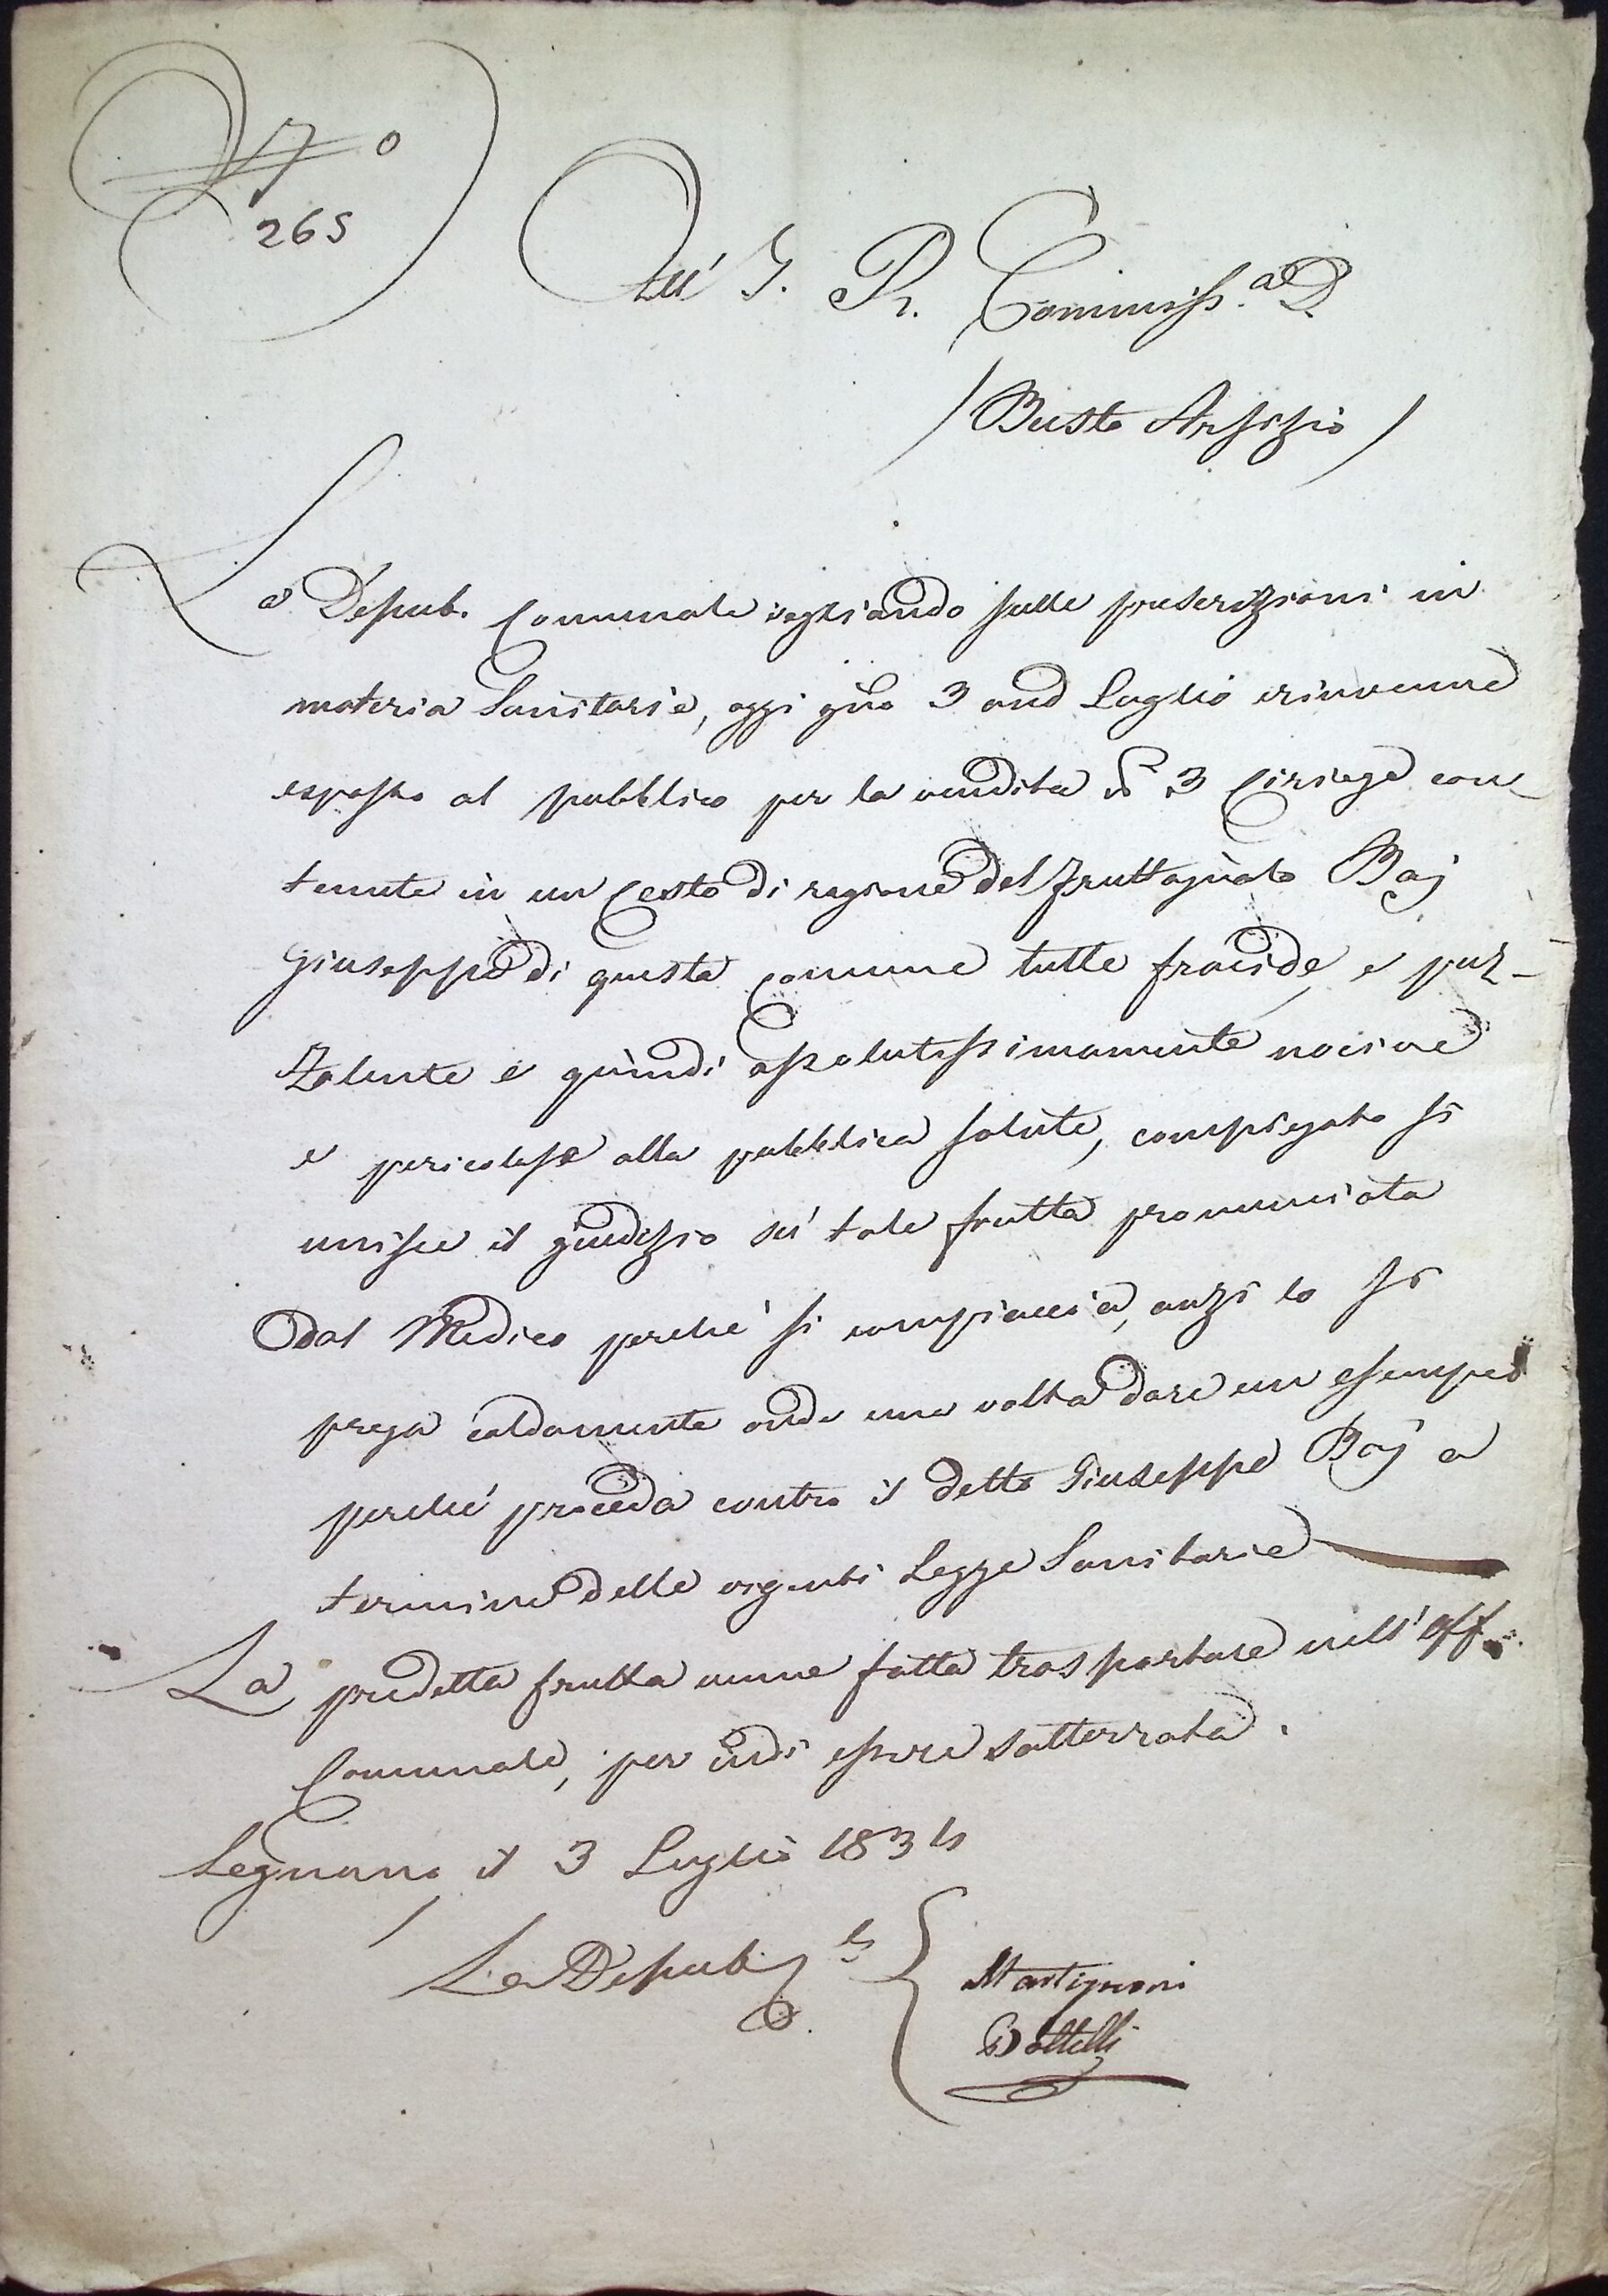 N° 
265
All' I. R. Commiss.a D.
(Busto Arsizio)
La Deput. Comunale vegliando sulle prescrizioni in
materia Sanitaria, oggi gno 3 and Luglio rinvenne
esposto al pubblico per la vendita 3 Ciriege con-
tenute in un Cesto di ragione del fruttajuolo Baj
Giuseppe di questa comune tutte fracide, e puz-
zolente e quindi assolutissimamente nocive
e pericolose alla pubblica salute, compiegato si
unisce il giudizio su' tale frutta pronunciata
dal Medico perchè si compiaccia, anzi lo si
prega caldamente onde una volta dare un esempio
perchè proceda contro il detto Giuseppe Baj a
termine delle vigenti Legge Sanitarie
La predetta frutta venne fatta trasportare nell' Uff.
Comunale, per indi essere sotterrata.
Legnano il 3 Luglio 1834
La Deput.
Martignoni